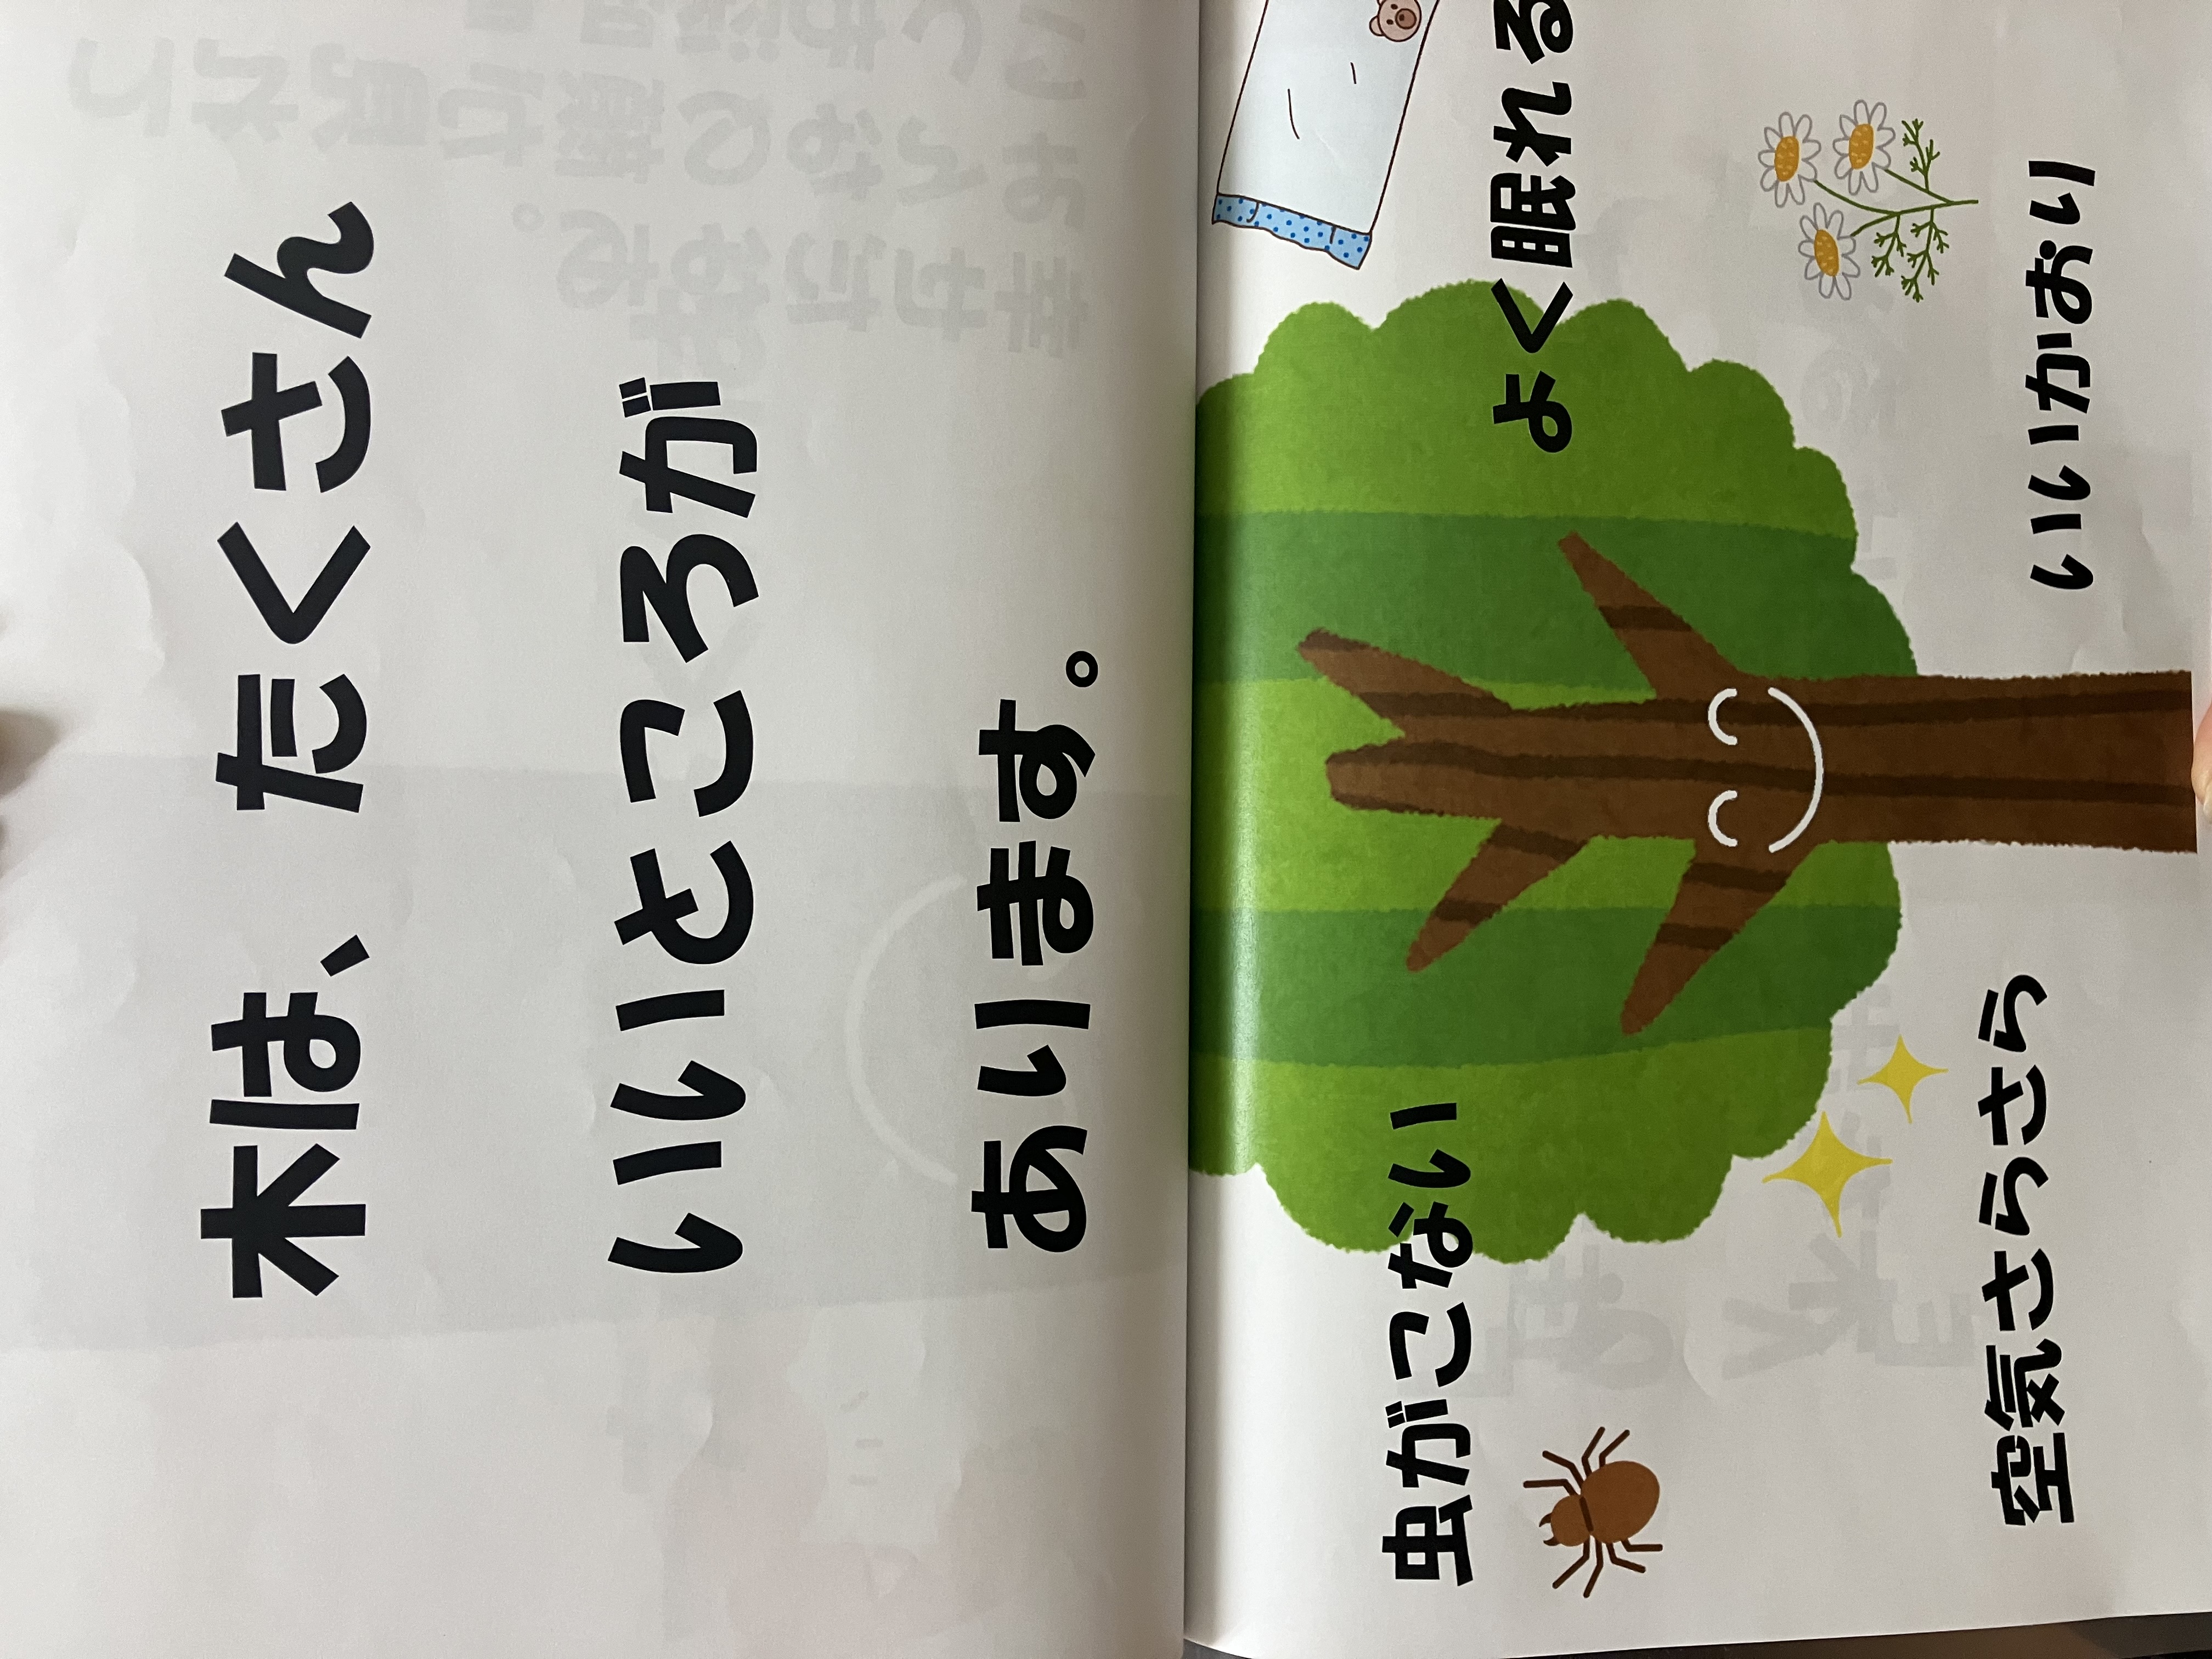 木は、たくさん
いいところが
あります。
虫がこない
よく眠れる
空気さらさら
いいかおり